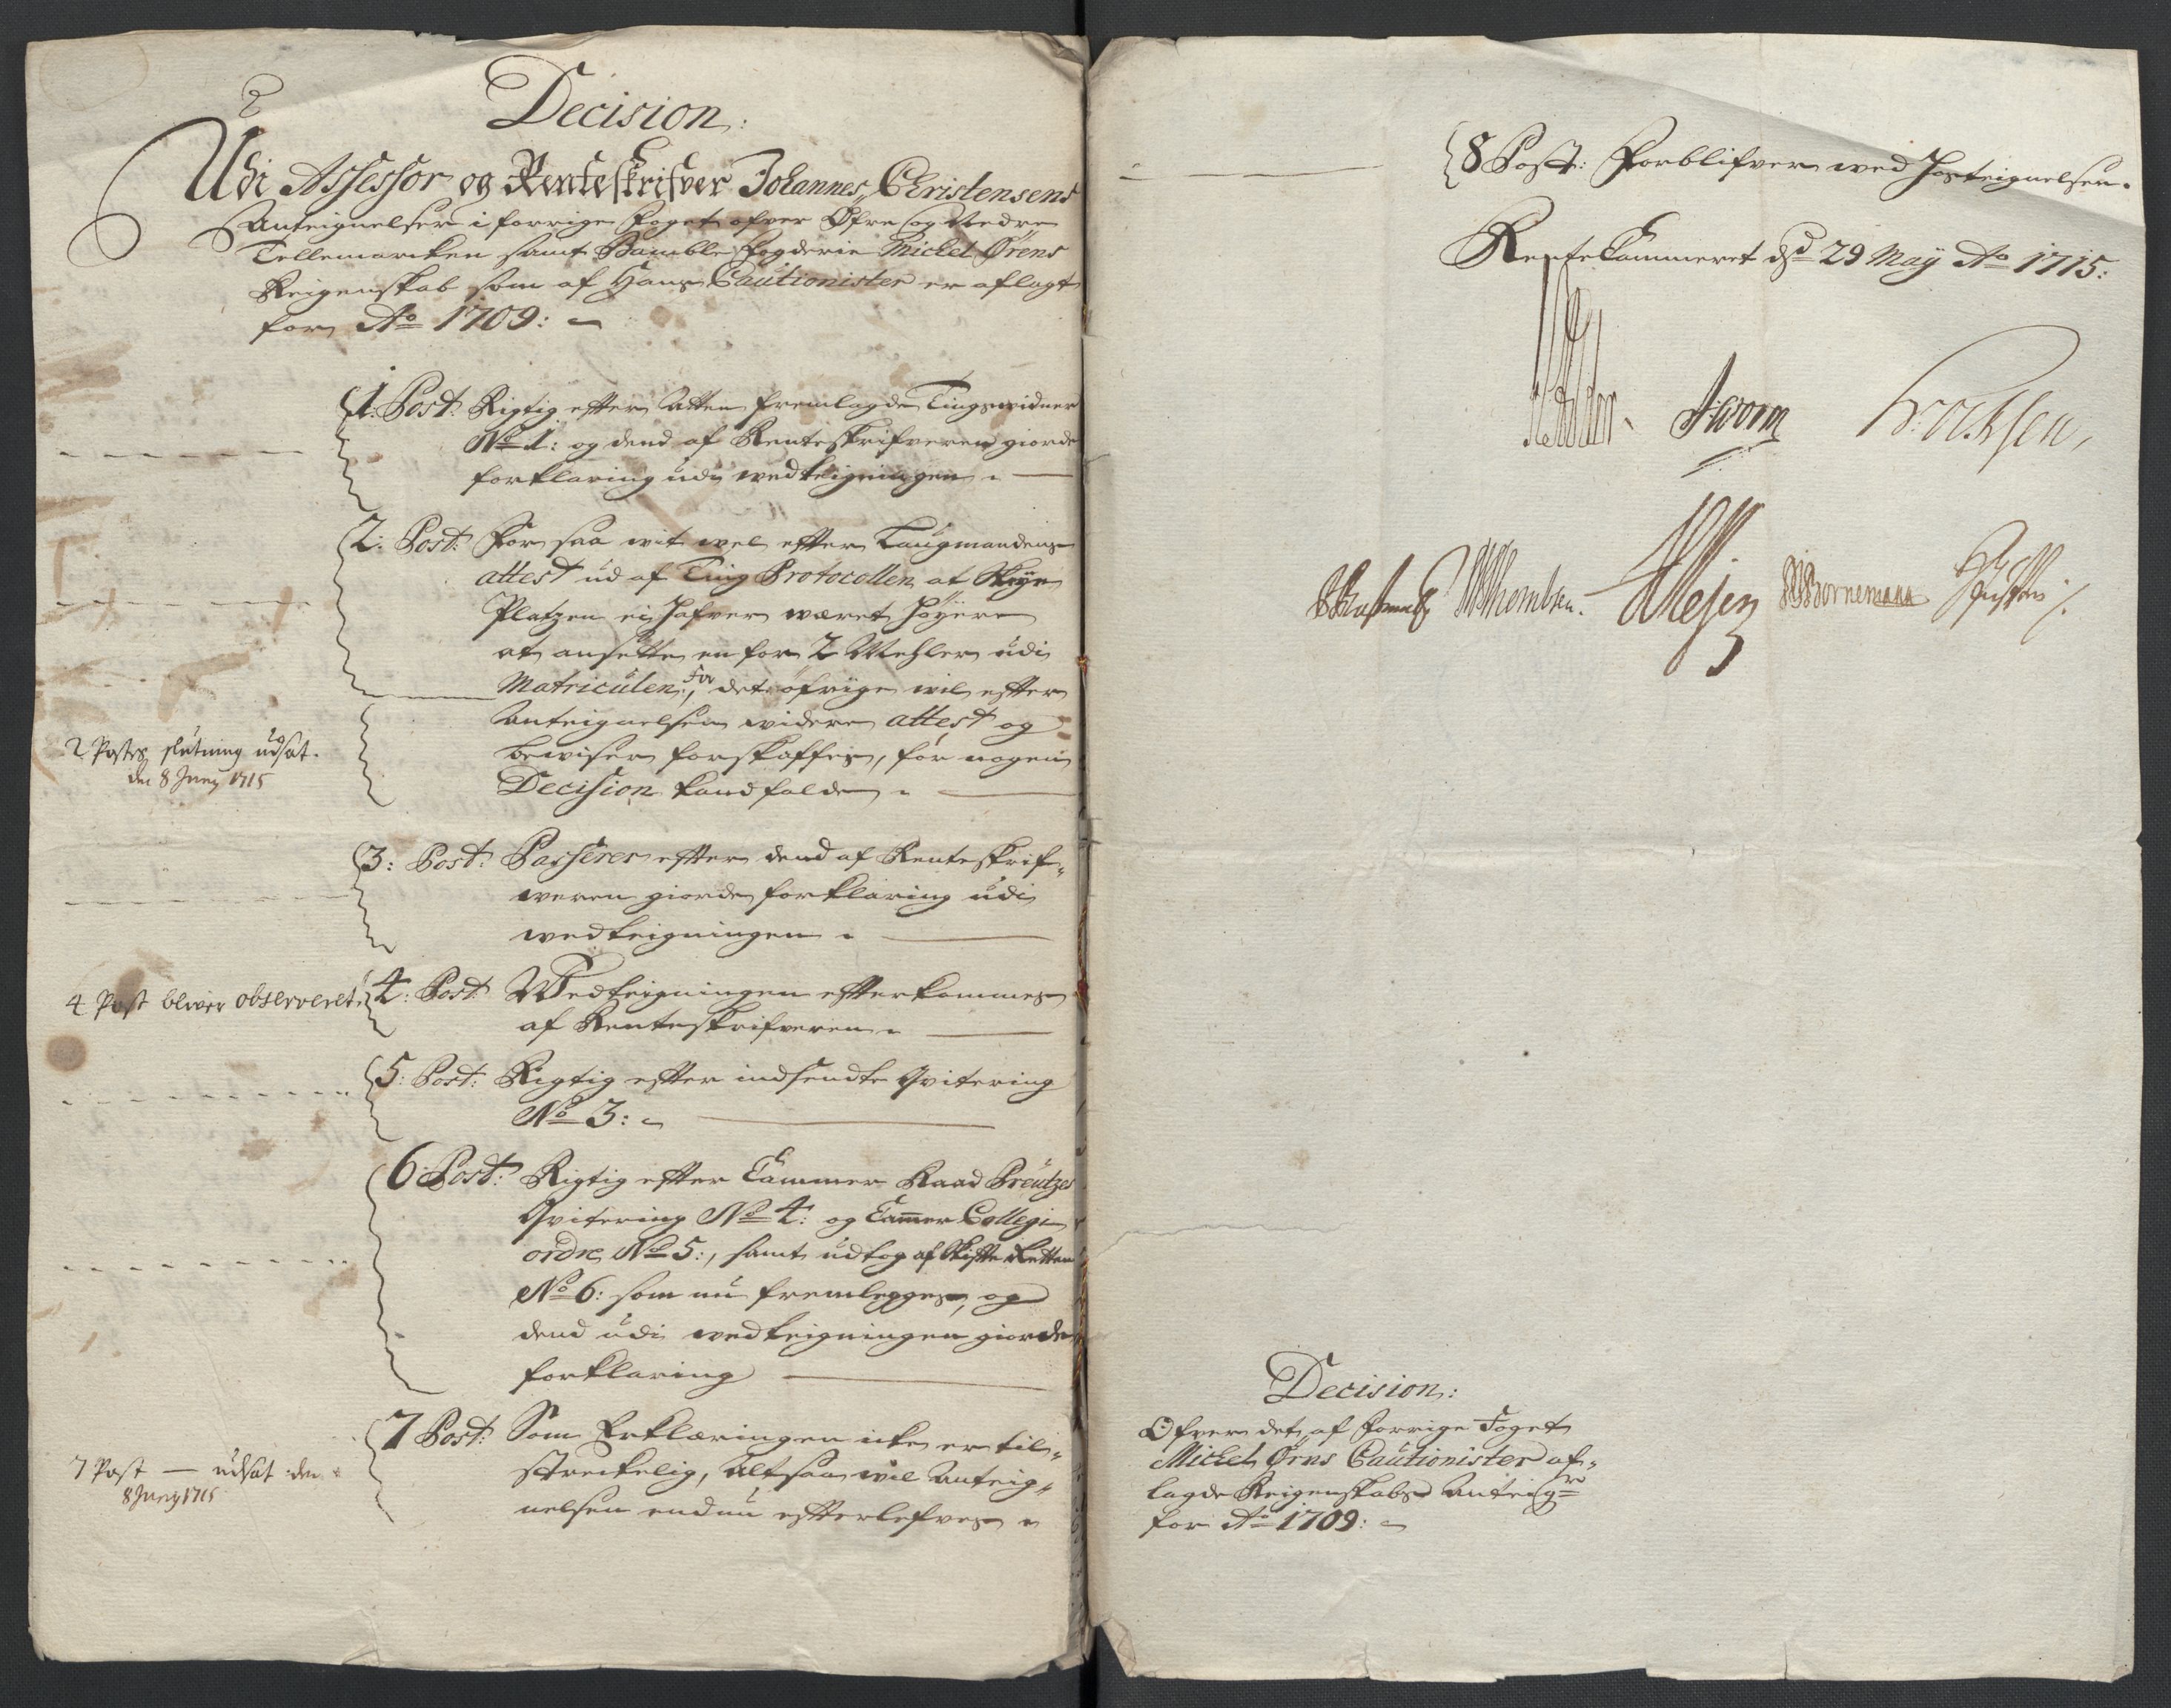 Decision:
Udi Assessor og Renteskrifver Johannes Christensens
Anteignelser i forrige Foget ofver Øfre og Nedre
Tellemarcken samt Bamble Fogderie Michel Ørens
Reigenskab som af Hans Cautionister er aflagt
for Ao 1709:
1. Post: Rigtig efter Atten fremlagde Tingsvidner
No 1: og dend af Renteskrifveren giorde
forklaring udi vedteigningen
2: Post: For saa vit vel efter Laugmandens
attest ud af Ting Protocollen at
Platzen ei hafver været høyere
at ansette en for 2 Mehler udi
Matriculen, for det øfrige vil efter
Anteignelsen videre attest og
beviser forskaffes, før nogen
Decision kand falde
2 Postes slutning udsat.
den 8 Juny 1715
3: Post: Passerer efter dend af Renteskrif-
veren giorde forklaring udi
vedteigningen
4 Post blever observeret
4: Post: Vedteigningen efterkommes
af Renteskrifveren
5: Post: Rigtig efter indsendte Qvitering
No 3:
6 Post: Rigtig efter Cammer Raad Kreutzes
Qvitering No 4: og Cammer Collegii
ordre No 5:, samt udtog af Skifte Retten
No 6: som nu fremlegges, og
dend udi vedteigningen giorde
forklaring
7 Post: Som Erklæringen icke er til-
streckelig, Altsaa vil Anteig-
nelsen endnu efterlefves
7 Post — udsat den
8 Juny 1715
8 Post: Forblifver ved Hosteignelsen.
Rente Cammeret dend 29 May Ao 1715:
Worm
WThombsen.
Bornemann
Decision:
Ofver det af forrige Foget
Michel Ørns Cautionister af-
lagde Reigenskabs Anteigr
for Ao 1709: